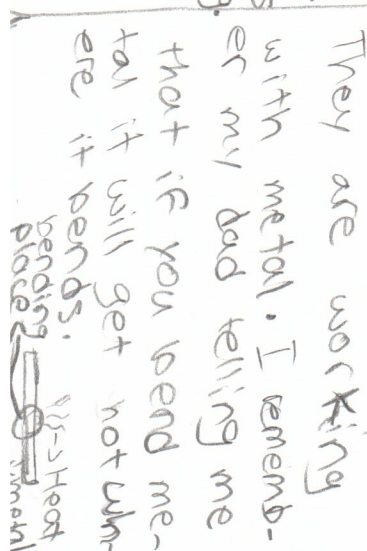 They are working
with metal. I rememb-
er my dad telling me
that if you bend me-
tal it will get hot wh-
ere it bends.
bending
place
Heat
metal